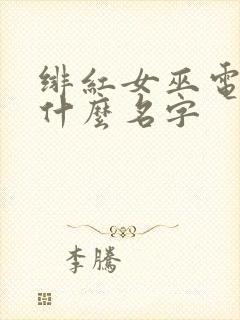 緋紅女巫電
什麼名字
李騰